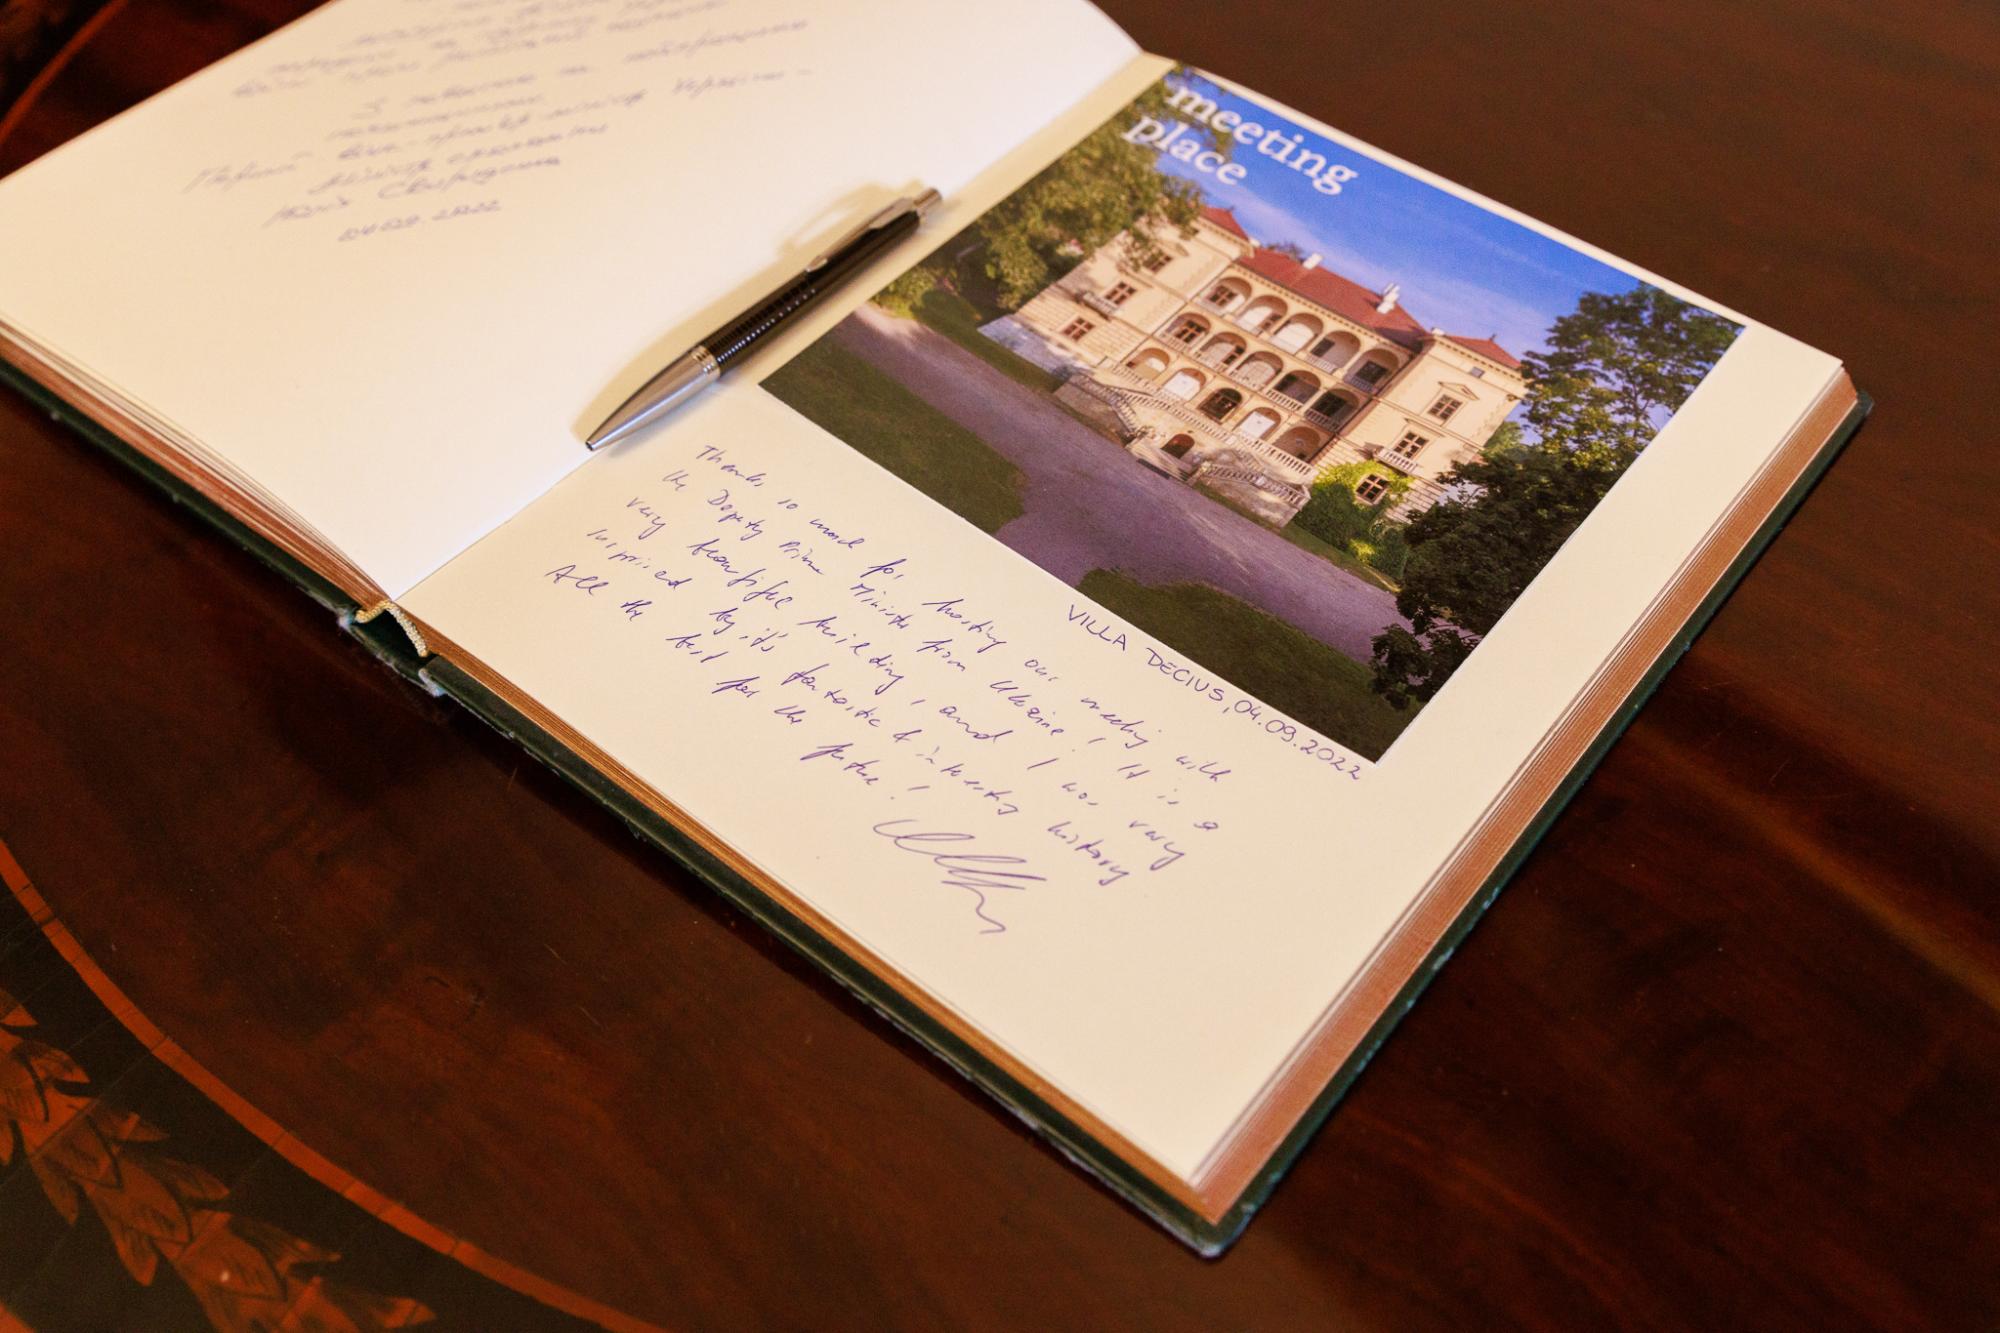 З повагою та найкращими
побажаннями
Перший віце-прем'єр-міністр України –
Міністр економіки
Юлія Свириденко
04.09.2022
meeting
place
VILLA DECIUS, 04.09.2022
Thanks so much for hosting our meeting with
the Deputy Prime Minister from Ukraine! It is a
very beautiful building, and I was very
surprised by it's fantastic & interesting history
All the best for the future!